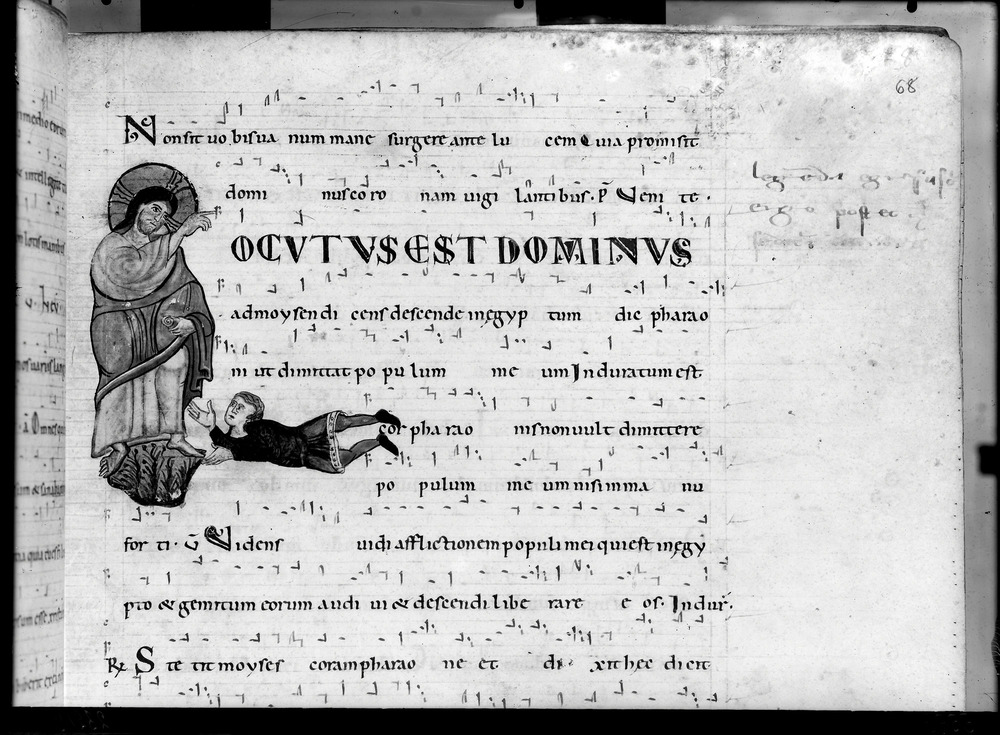 68
Non sit uo bis ua num mane surgere ante lu cem Quia promisit
domi nus co ro nam uigi lanti bus. P̄ Veni te.
OCUTUS EST DOMINUS
ad moysen di cens descende in egyp tum dic pharao
ni ut dimittat po pu lum me um Induratum est
cor pha rao nis non uult dimittere
po pulum me um nisi in ma nu
for ti. V̄ Videns uidi afflictionem populi mei qui est in egy
pto & gemitum eorum audi ui & descendi libe rare e os. Indur̄.
R̷ S te tit moyses coram pharao ne et di xit hec dicit